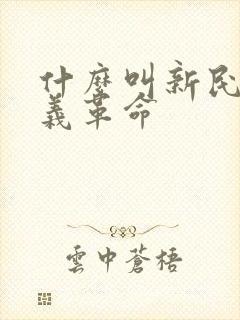 什麼叫新民
義革命
雲中蒼梧